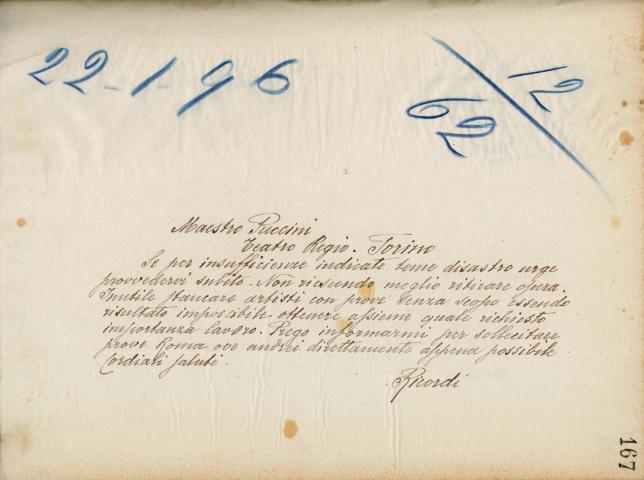 22-1-96
12/62
Maestro Puccini
Teatro Regio. Torino
Se per insufficienze indicate teme disastro urge
provvedervi subito. Non riescendo meglio ritirare opera.
Inutile stancare artisti con prove senza scopo essendo
risultato impossibile ottenere assieme quale richiesto
importanza lavoro. Prego informarmi per sollecitare
prove Roma ove andrei direttamente appena possibile
Cordiali saluti.
Ricordi
167